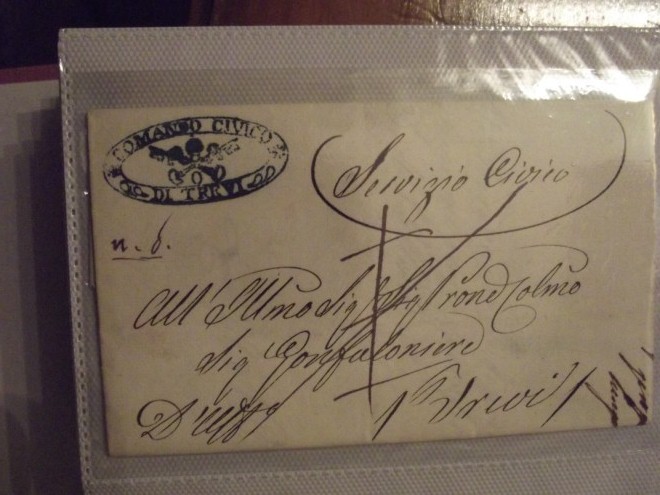 COMANDO CIVICO
DI TREVI
Servizio Civico
n. 6.
All' Illmo Sig Sig Prone Colmo
Sig Gonfaloniere
D'Uffo Trevi